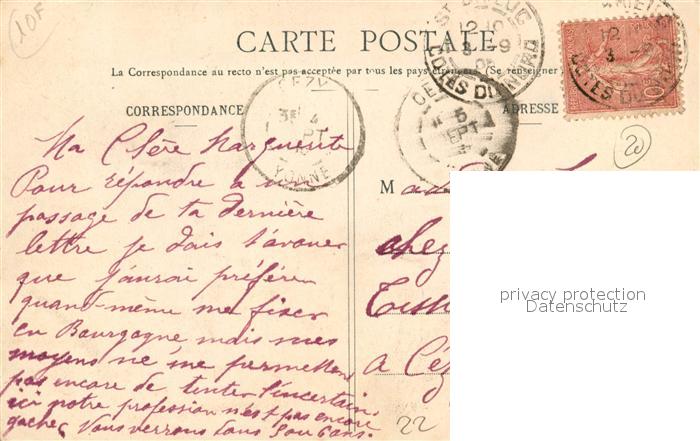 10F
CARTE POSTALE
La Correspondance au recto n'est pas acceptée par tous les pays étrangers (Se renseigner
CORRESPONDANCE
ADRESSE
COTES DU NORD
12
3 -9
YONNE
4
5
SEPT
COTES DU NORD
10
20
Ma Chère Marguerite
Pour répondre à un
passage de ta dernière
lettre je dois t'avouer
que j'aurai préférer
quand-même me fixer
en Bourgogne mais mes
moyens ne me permettent
pas encore de tenter l'incertain
ici notre profession n'est pas encore
gachée Vous verrons dans 5 ou 6 ans.
M
chez
a Cez
22
privacy protection
Datenschutz